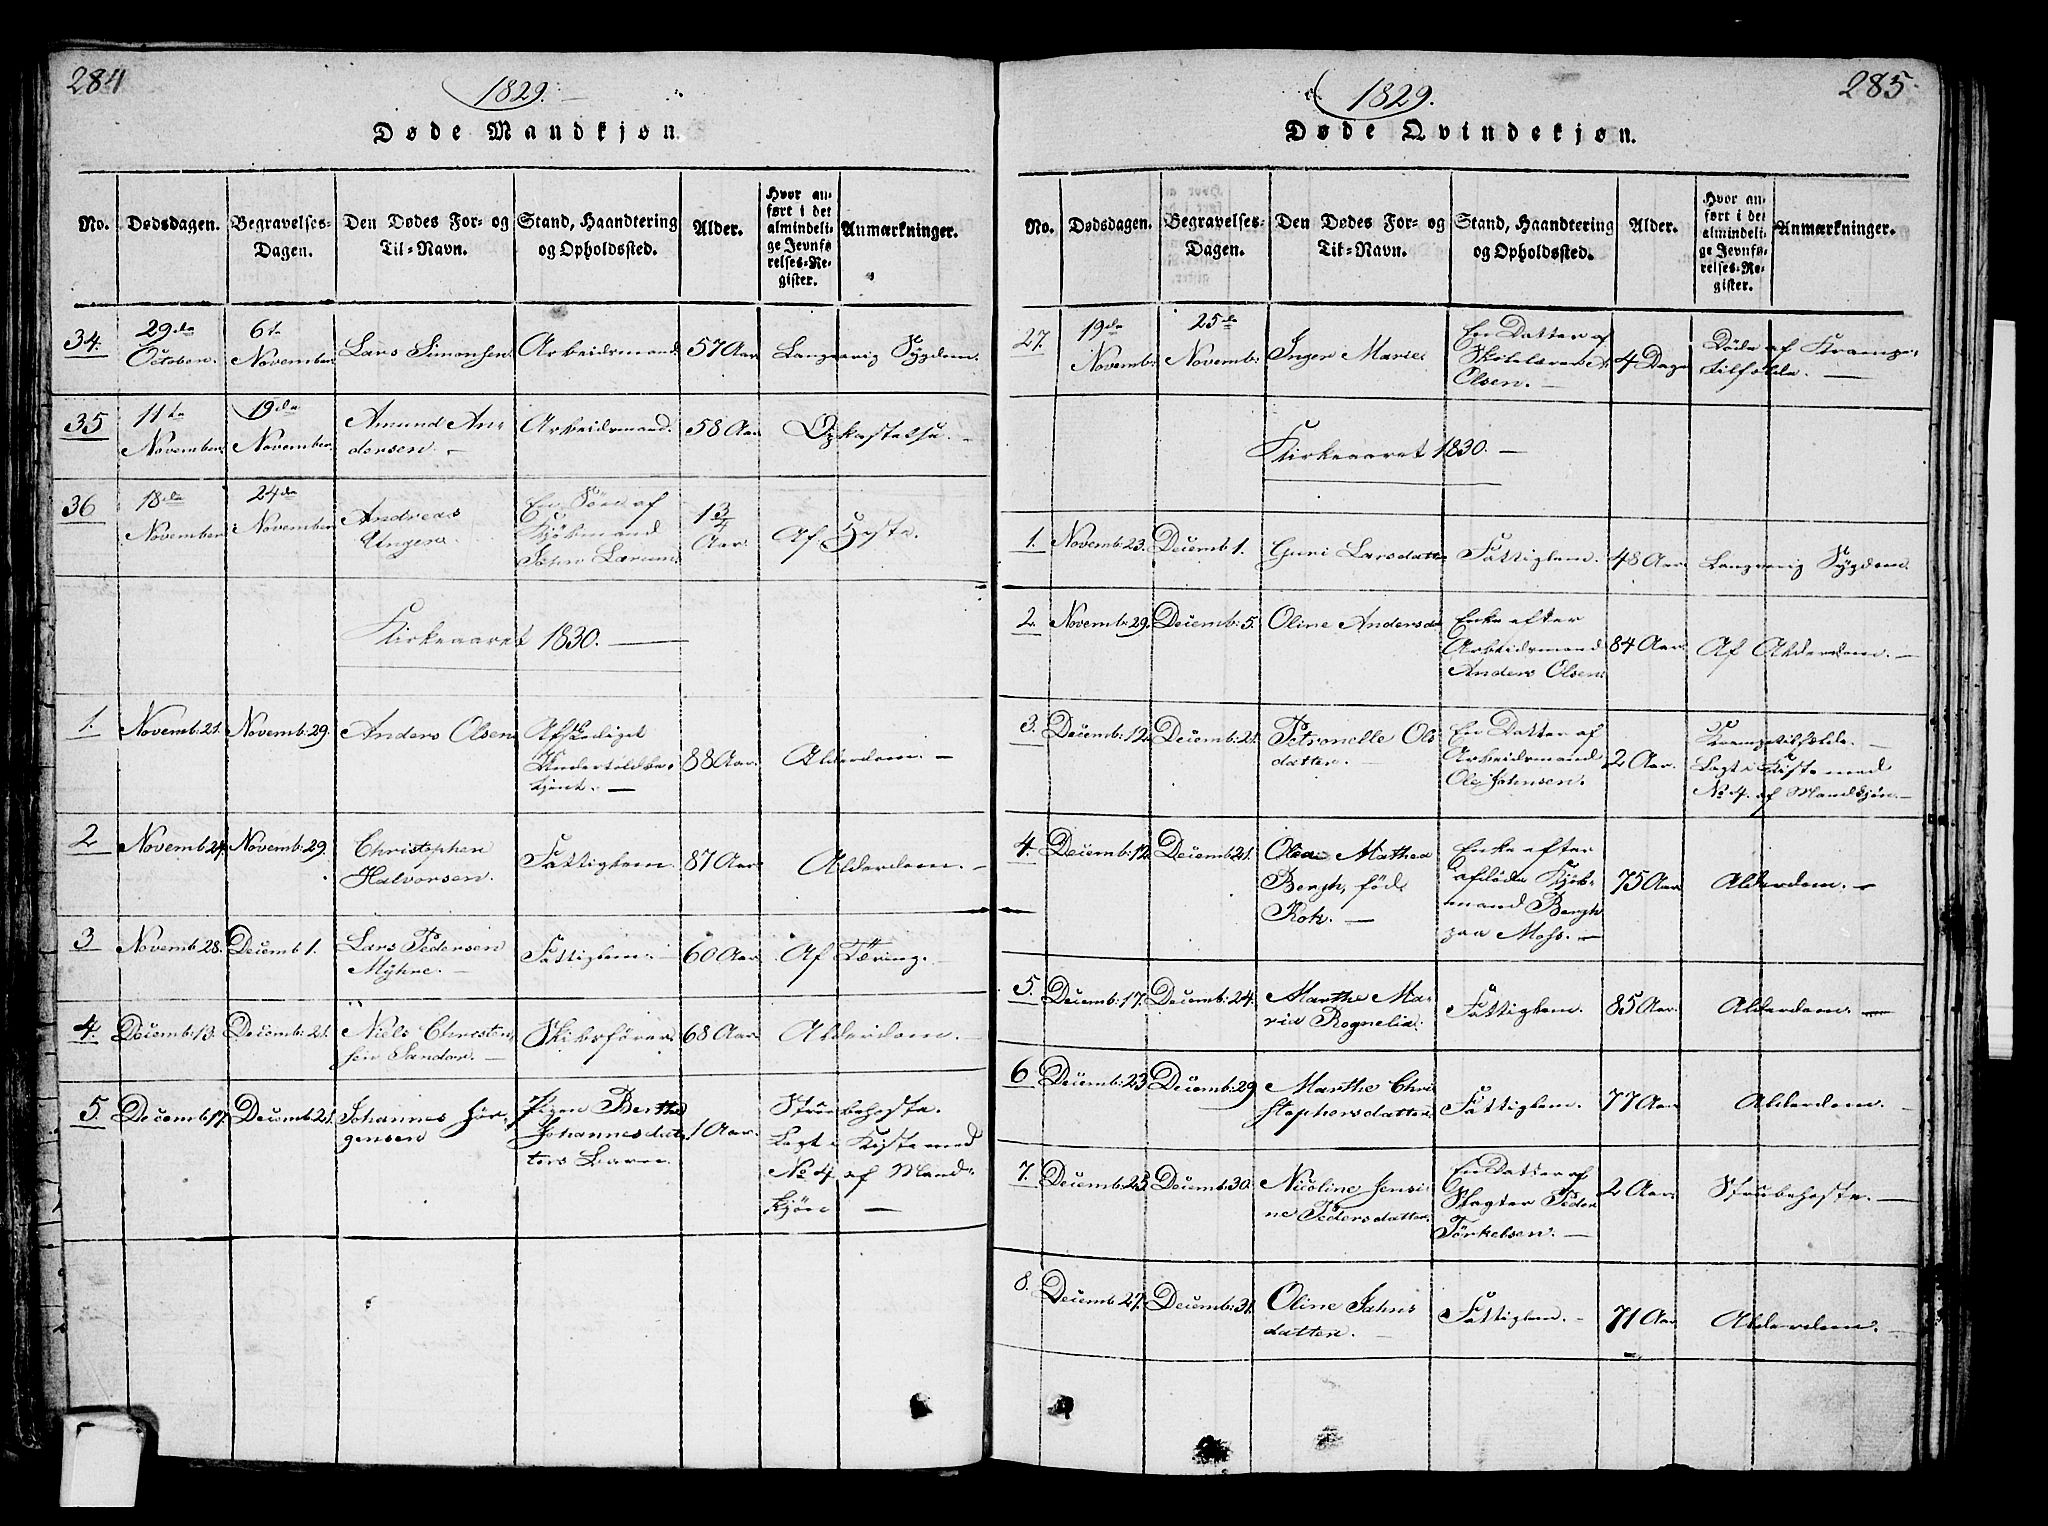 284
1829.
Døde Mandkjøn.
No.
Dødsdagen.
Begravelses-
Dagen.
Den Dødes For- og
Til-Navn.
Stand, Haandtering
og Opholdssted.
Alder.
Hvor an-
ført i det
almindeli-
ge Jevnfø-
relses-Re-
gister.
Anmærkninger.
34.
29de
October.
6te
November.
Lars Simonsen
Arbeidsmand.
57 Aar.
Langvarig Sygdom.
35
11te
November.
19de
November.
Amund An-
dersen. —
Arbeidsmand.
58 Aar.
Opkastelse. —
36
18de
November
24de
November
Andreas
Unger.
En Søn af
Kjöbmand
John Larum.
1 3/4
Aar.
Af Hoste.
Kirkeaaret 1830. —
1.
Novemb: 21.
Novemb: 29.
Anders Olsen
88 Aar.
Alderdom. —
2
Novemb: 24.
Novemb: 29.
Christopher
Halvorsen.
Fattiglem.
87 Aar.
Alderdom. —
3
Novemb: 28.
Decemb: 1.
Lars Pedersen
Myhre. —
Fattiglem.
60 Aar.
Af Tæring. —
4.
Decemb: 13.
Decemb: 21.
Niels Christen-
sen Sandor. —
Skibsförer.
68 Aar.
Alderdom. —
5.
Decemb: 17.
Decemb: 21.
Johannes Jör-
gensen
Pigen Berthe
Johannesdat-
ters Barn.
1 Aar.
Strubehoste.
Lagt i Kiste med
No 4 af Mand-
kjön —
285
1829.
Døde Qvindekjøn.
No.
Dødsdagen.
Begravelses-
Dagen.
Den Dødes For- og
Til-Navn.
Stand, Haandtering
og Opholdssted.
Alder.
Hvor an-
ført i det
almindeli-
ge Jevnfø-
relses-Re-
gister.
Anmærkninger.
27.
19de
Novemb:
25de
Novemb:
Inger Marie
En Datter af
Olsen. —
4 Dage
Döde af Krampe-
tilfælde. —
Kirkeaaret 1830. —
1.
Novemb: 23.
Decemb: 1.
Guri Larsdatter
Fattiglem.
48 Aar.
Langvarig Sygdom.
2.
Novemb: 29.
Decemb: 5.
Oline Andersd
Enke efter
Arbeidsmand
Anders Olsen.
84 Aar.
Af Alderdom. —
3.
Decemb: 12.
Decemb: 21.
Petronelle Ols
datter. —
En Datter af
Arbeidsmand
Ole Johnsen.
2 Aar.
Krampetilfælde. —
Lagt i Kiste med
No 4. af Mandkjön. —
4.
Decemb: 12.
Decemb: 21.
Olea Mathea
Bergh, föd
Kok. —
Enke efter
afdöde Kjöb-
mand Bergh
paa Moss. —
75 Aar
Alderdom. —
5.
Decemb: 17.
Decemb: 24.
Marthe Ma-
ria Rognelia.
Fattiglem.
85 Aar.
Alderdom. —
6
Decemb: 23.
Decemb: 29
Marthe Chri
stophersdatter.
Fattiglem.
77 Aar
Alderdom. —
7.
Decemb: 25.
Decemb: 30.
Nicoline Jensi-
ne Pedersdatter.
En Datter af
Slagter Peder
Törkelsen. —
2 Aar.
Strubehoste. —
8.
Decemb: 27.
Decemb: 31.
Oline Johns
datter. —
Fattiglem. —
71 Aar
Alderdom. —